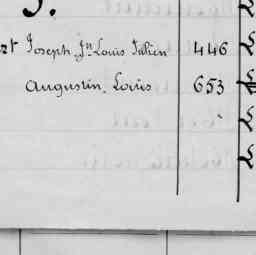 J.
st Joseph Jn Louis Julien 446
Augustin, Louis 653